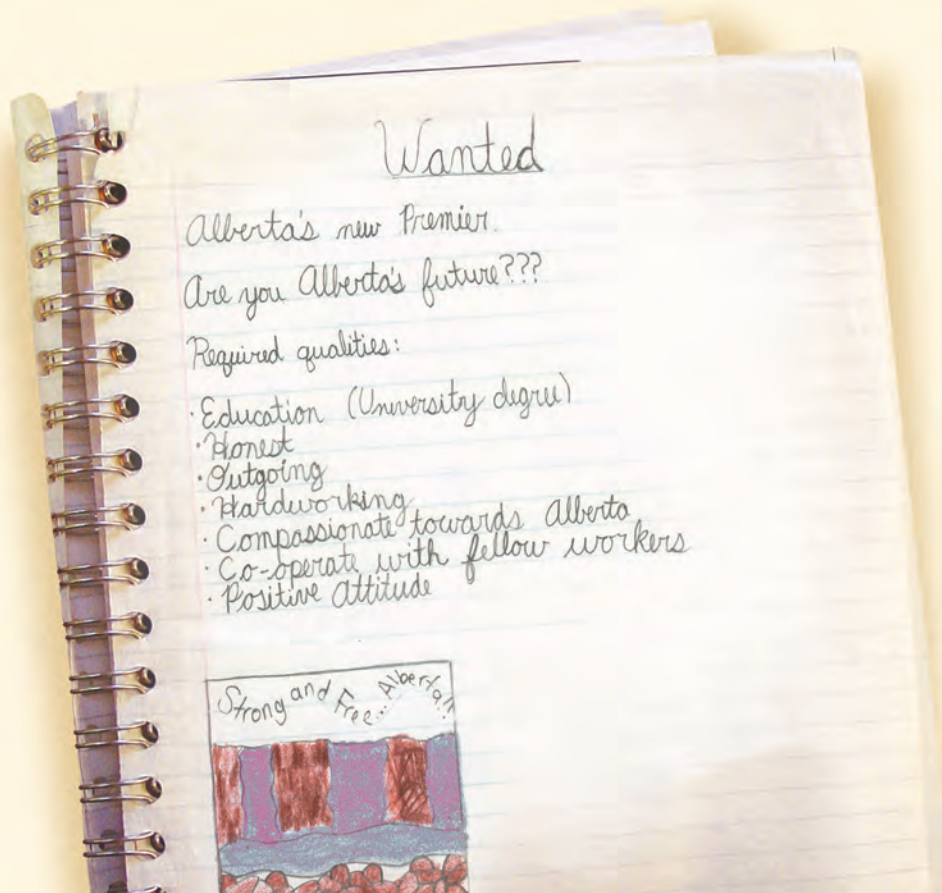 Wanted
Alberta's new Premier.
Are you Alberta's future???
Required qualities:
· Education (University degree)
· Honest
· Outgoing
· Hardworking
· Compassionate towards Alberta
· Co-operate with fellow workers
· Positive Attitude
Strong and Free... Alberta!!